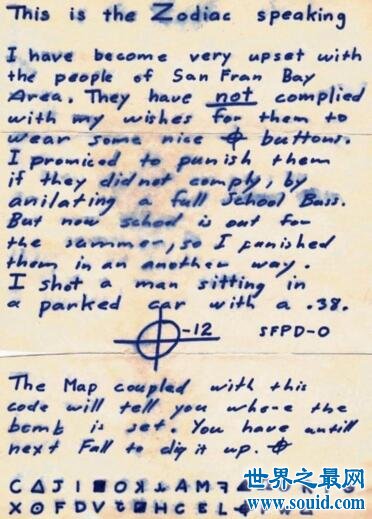 This is the Zodiac speaking
I have become very upset with
the people of San Fran Bay
Area. They have not complied
with my wishes for them to
wear some nice ⌖ buttons.
I promiced to punish them
if they did not comply, by
anilating a full School Buss.
But now school is out for
the summer, so I punished
them in an another way.
I shot a man sitting in
a parked car with a .38.
⌖-12 SFPD-0
The Map coupled with this
code will tell you where the
bomb is set. You have antill
next Fall to dig it up. ⌖
C Δ J I ■ O
X ʘ F D V
世界之最网
www.souid.com